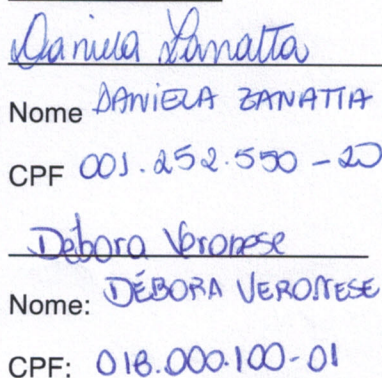 Daniela Zanatta
Nome DANIELA ZANATTA
CPF 001.252.550-20
Débora Veronese
Nome: DÉBORA VERONESE
CPF: 018.000.100-01